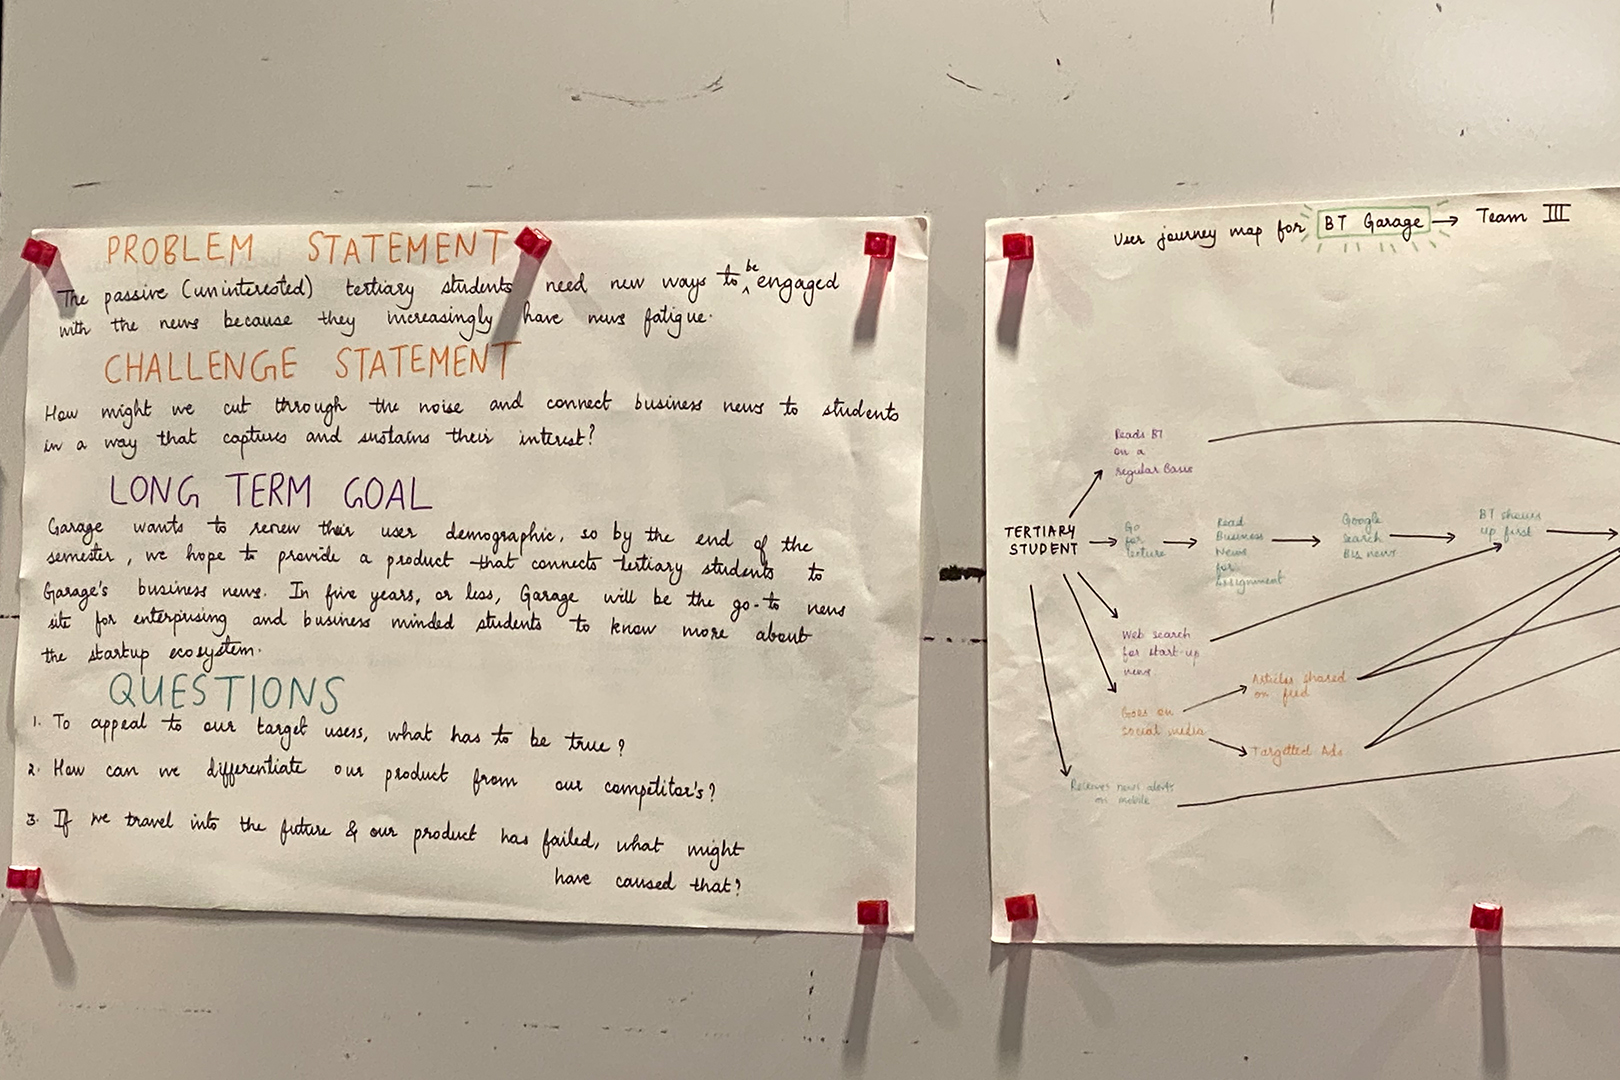 PROBLEM STATEMENT
The passive (uninterested) tertiary students need new ways to be engaged
with the news because they increasingly have news fatigue.
CHALLENGE STATEMENT
How might we cut through the noise and connect business news to students
in a way that captures and sustains their interest?
LONG TERM GOAL
Garage wants to renew their user demographic, so by the end of the
semester, we hope to provide a product that connects tertiary students to
Garage's business news. In five years, or less, Garage will be the go-to news
site for enterprising and business minded students to know more about
the startup ecosystem.
QUESTIONS
1. To appeal to our target users, what has to be true?
2. How can we differentiate our product from our competitor's?
3. If we travel into the future & our product has failed, what might
have caused that?
User journey map for BT Garage → Team III
Reads BT
on a
regular basis
TERTIARY
STUDENT
Go
for
lecture
Read
Business
News
for
assignment
Google
search
Biz news
BT shows
up first
Web search
for start-up
news
Goes on
social media
Articles shared
on feed
Targetted Ads
Receives news alerts
on mobile